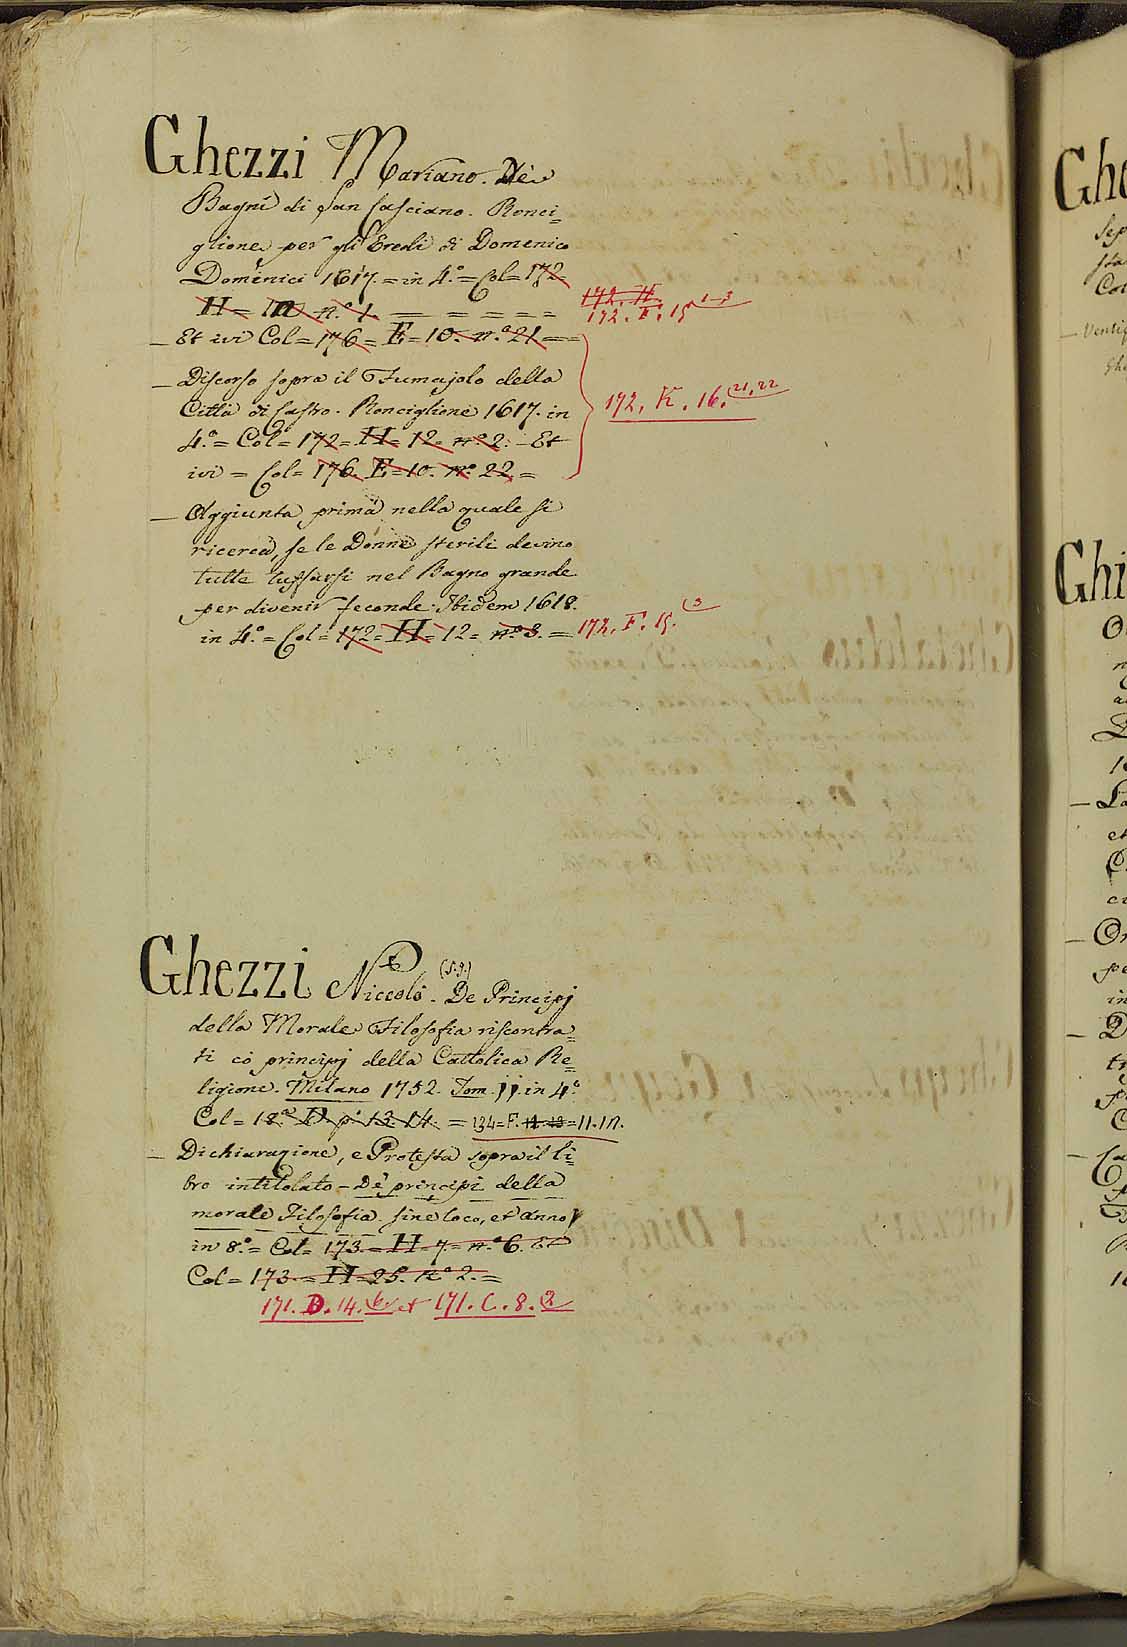 Ghezzi Mariano. De
Bagni di San Casciano. Ronci=
glione per gli Eredi di Domenico
Domenici 1617. = in 4.° = Col = 172=
H = n.° 1. = = = = =
172. H.
172. F. 15 1-3
— Et ivi Col = 176 = E = 10. n.° 21 ==
— Discorso sopra il Fumajolo della
Città di Castro. Ronciglione 1617. in
172. K. 16. 21, 22
4.° = Col = 172 = H = 12 = n.° 2. - Et
ivi = Col = 176. E = 10. n.° 22 =
— Aggiunta prima nella quale si
ricerca, se le Donne sterili devino
tutte tuffarsi nel Bagno grande
per divenir feconde. Ibidem 1618.
in 4.° = Col = 172 = H = 12 = n.° 3. = 172. F. 15. 3
Ghezzi Niccolò. (S.J.) De Principj
della Morale Filosofia riscontra=
ti cò principj della Cattolica Re=
ligione. Milano 1752. Tom. II. in 4.°
Col = 18. D. 13. 14. = 134 = F. = 11. 12.
— Dichiarazione, e Protesta sopra il li=
bro intitolato — De' principj della
morale Filosofia. sine loco, et anno
in 8.° = Col = 173 = H = 7. = n.° 6. Et
Col = 173 = H = 25. n.° 2. =
171. D. 14. 6 et 171. C. 8. 2
Ghe
Sep
sta
Col
— Ventiq
Ghe
Ghi